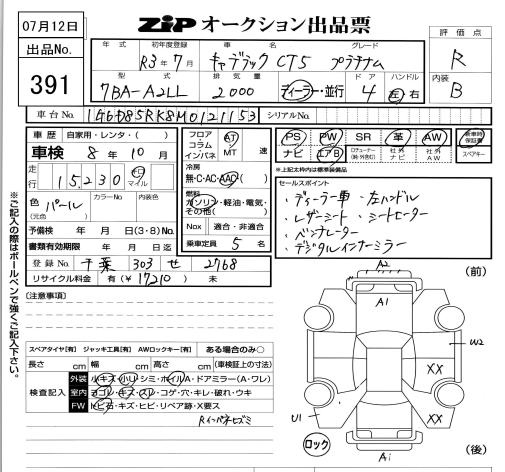 07月12日
ZIP オークション出品票
出品No.
391
評価点
R
内装
B
年式 初年度登録 車名 グレード
R3年7月 キャデラック CT5 プラチナム
型式 排気量 ドア ハンドル
7BA-A2LL 2000 ディーラー・並行 4 左 右
車台No. 1G6D85RK8M0121153 シリアルNo.
車歴 自家用・レンタ・( )
車検 8年10月
走行 15,230 キロ マイル
色(元色) パール カラーNo. 内装色
予備検 年 月 日(3・8)No.
書類有効期限 年 月 日迄
登録No. 千葉 303 せ 2768
リサイクル料金 有(¥17210) 未
フロア
コラム
インパネ
AT
MT 速
冷房
無・C・AC・AAC
燃料
ガソリン・軽油・電気・
その他( )
Nox 適合・非適合
乗車定員 5 名
PS PW SR 革 AW 新車時保証書
ナビ エアB 社外ナビ 社外AW スペアキー
※上記太枠内は標準装備品
セールスポイント
・ディーラー車 ・左ハンドル
・レザーシート ・シートヒーター
・ベンチレーター
・デジタルインナーミラー
※ご記入の際はボールペンで強くご記入下さい。
[注意事項]
スペアタイヤ[有] ジャッキ工具[有] AWロックキー[有] ある場合のみ○
長さ cm 幅 cm 高さ cm (車検証上の寸法)
検査記入
外装 小キズ・小U・シミ・ホイルA・ドアミラー(A・ワレ)
室内 ヨゴレ・キズ・スレ・コゲ・穴・キレ・破れ・ウキ
FW トビ石・キズ・ヒビ・リペア跡・X要ス
(前)
A2
A1
U2
XX
XX
U1
ロック
A1
(後)